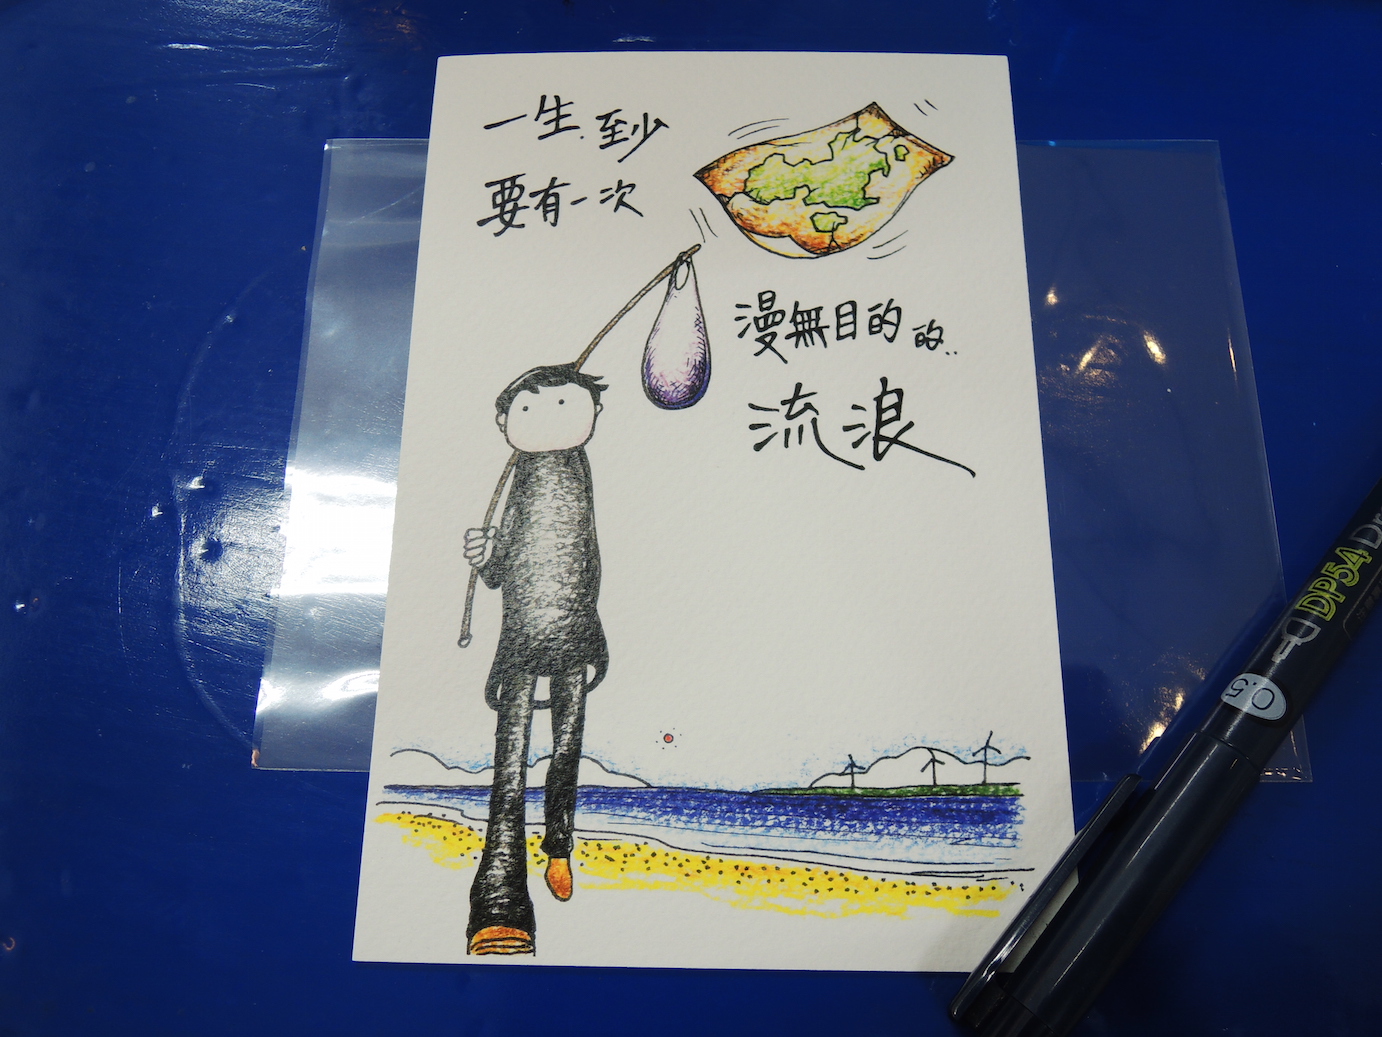 一生.至少
要有一次
漫無目的的..
流浪
DP54 Dr
0.5